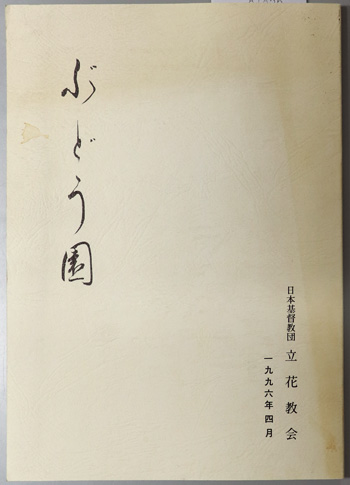 ぶどう園
日本基督教団 立花教会
一九九六年四月